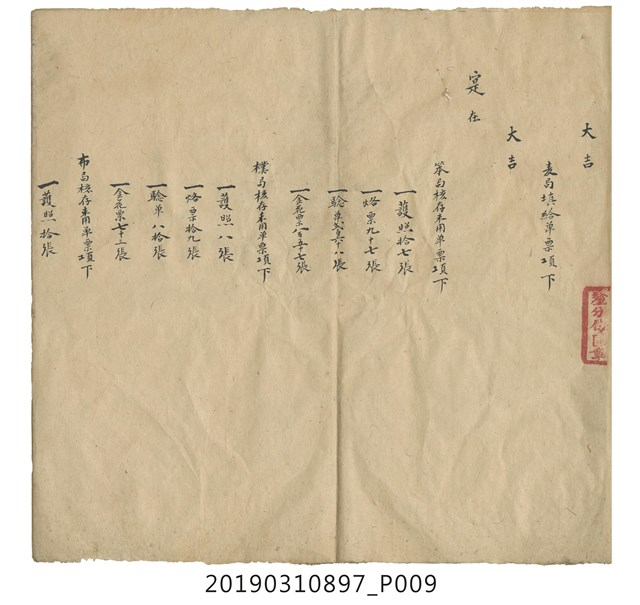 大吉
麦局填給单票項下
大吉
寔在
笨局核存未用单票項下
一護照拾七張
一烙票九十七張
一騐单弍百六十八張
一金花票八百五十七張
樸局核存未用单票項下
一護照八張
一烙票拾九張
一騐单八拾張
一金花票七十三張
布局核存未用单票項下
一護照拾張
20190310897_P009